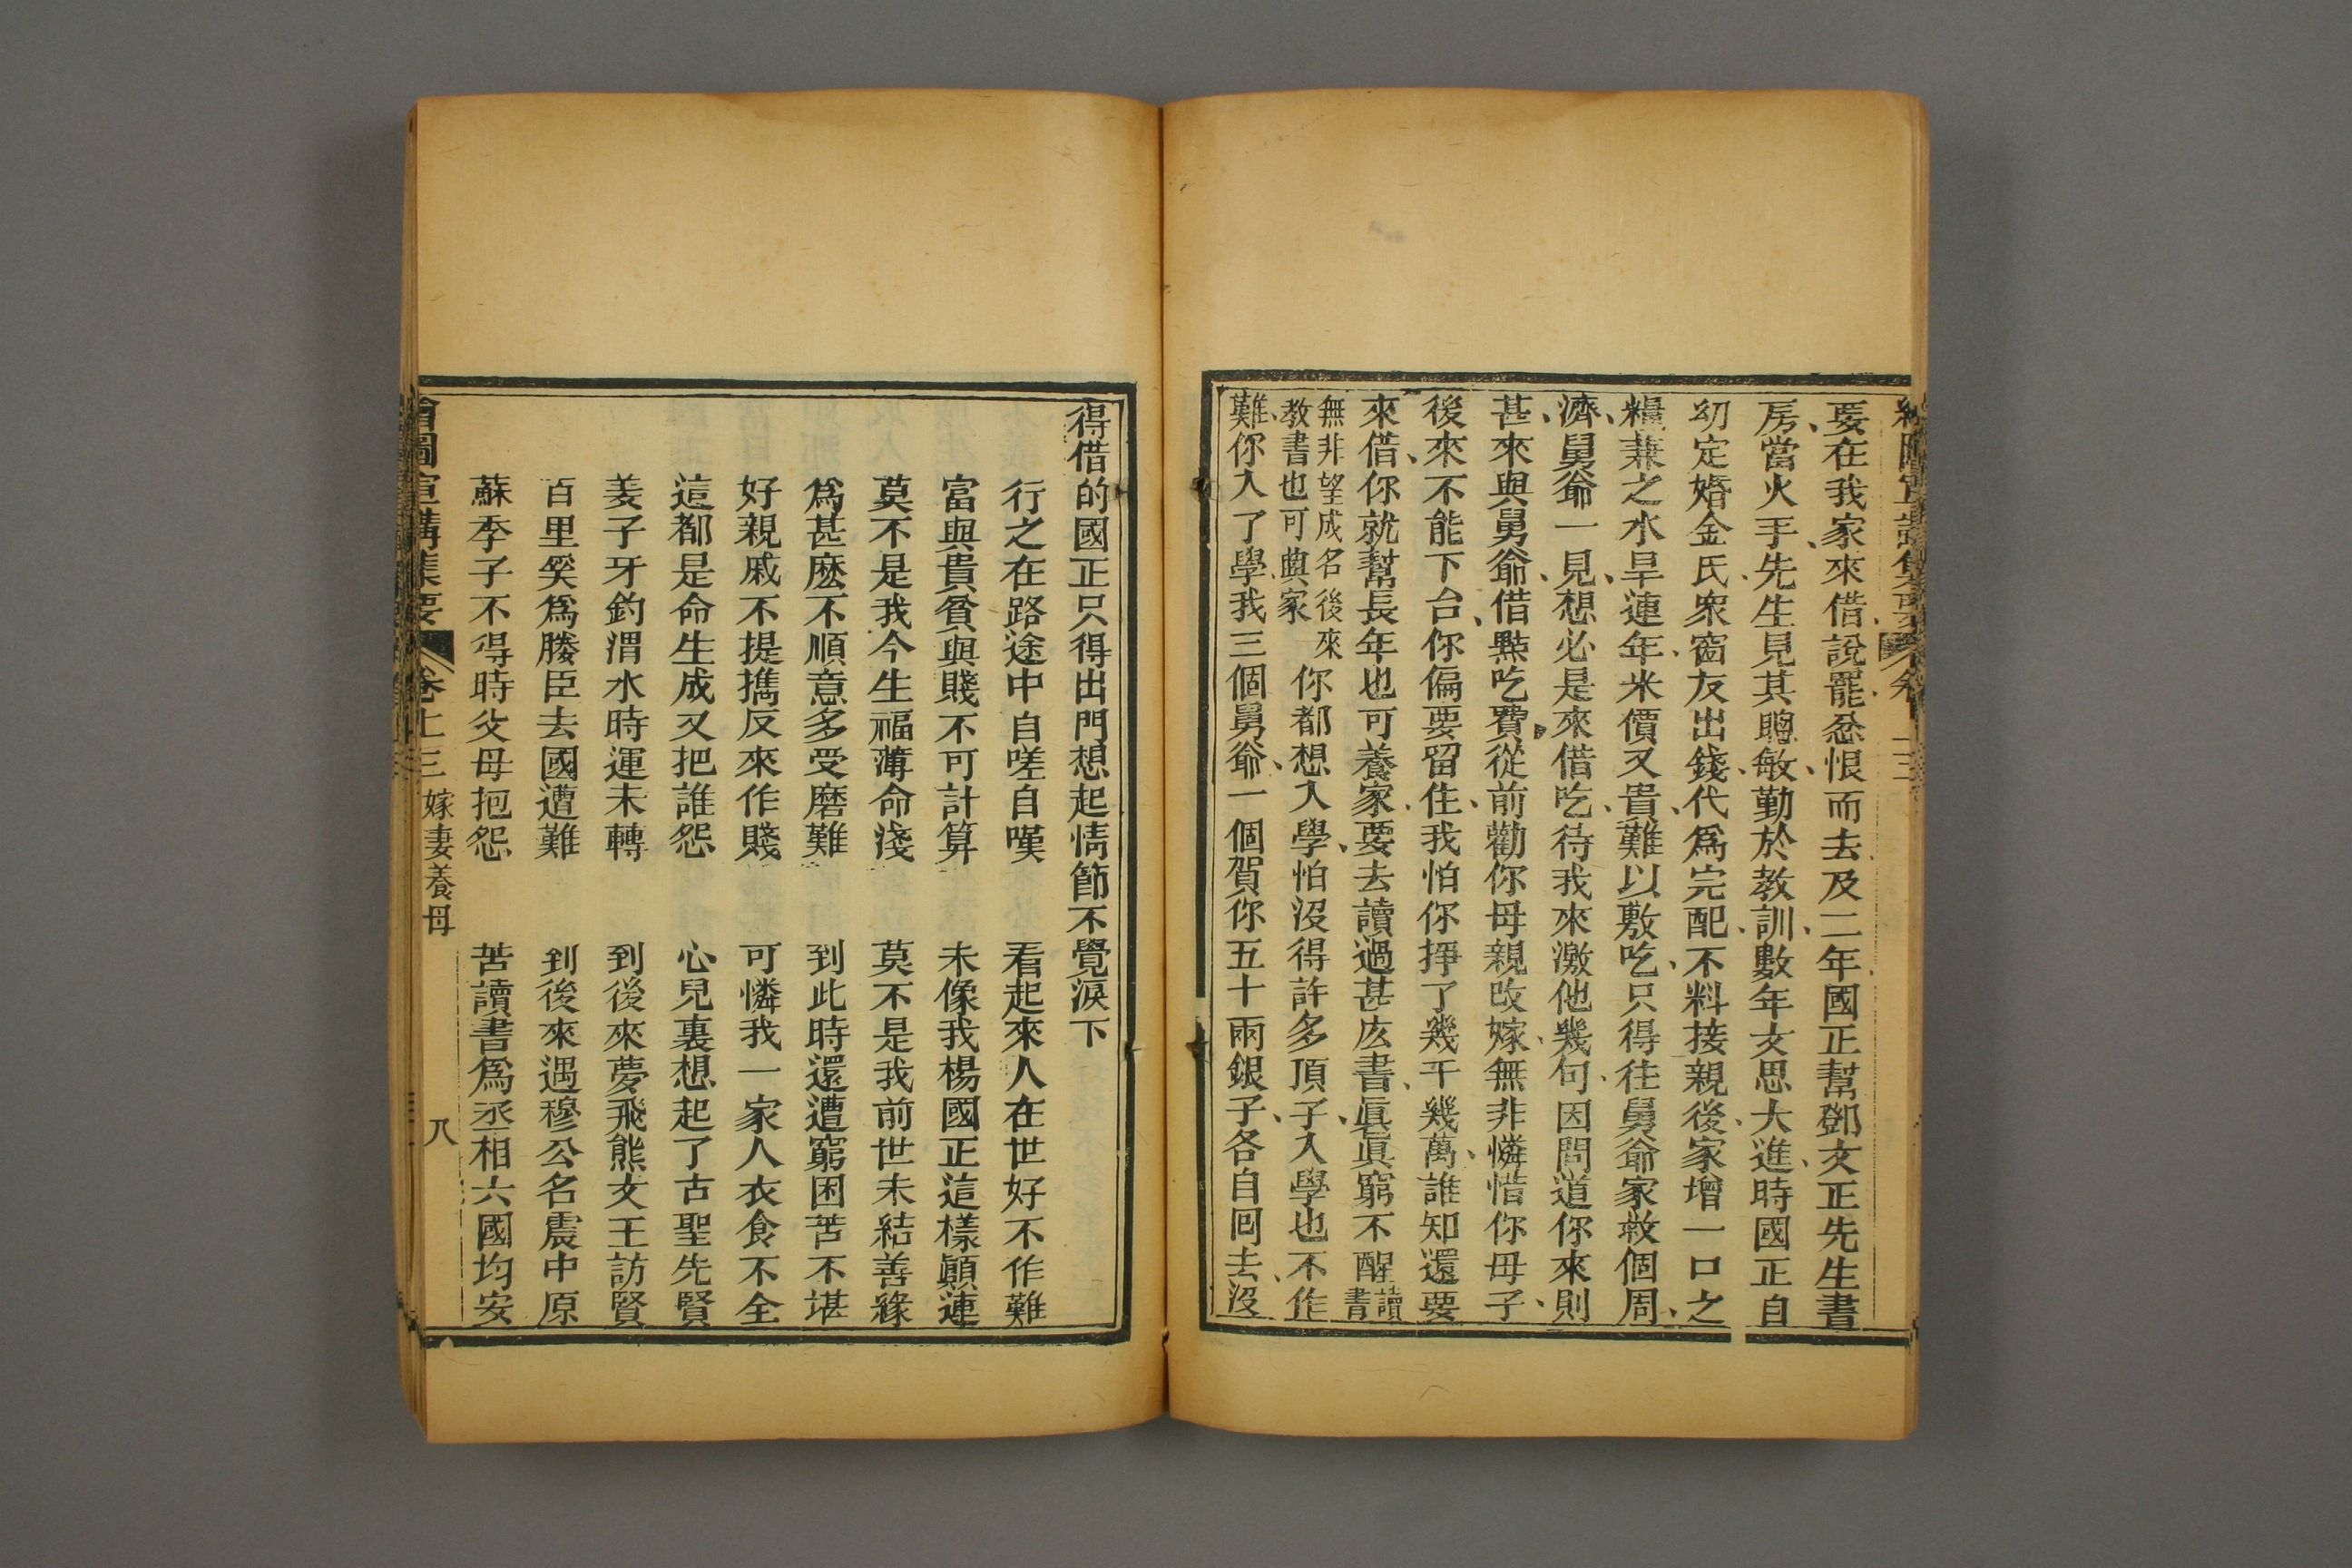 要在我家來借說罷忿恨而去及二年國正幫鄧文正先生書
房當火手先生見其聰敏勤於教訓數年文思大進時國正自
幼定婚金氏眾窗友出錢代爲完配不料接親後家增一口之
糧兼之水旱連年米價又貴難以敷吃只得往舅爺家救個周
濟舅爺一見想必是來借吃待我來激他幾句因問道你來則
甚來與舅爺借點吃費從前勸你母親改嫁無非憐惜你母子
後來不能下台你偏要留住我怕你掙了幾千幾萬誰知還要
來借你就幫長年也可養家要去讀過甚庅書眞眞窮不醒讀書
無非望成名後來
教書也可興家
你都想入學怕沒得許多頂子入學也不作
難你入了學我三個舅爺一個賀你五十兩銀子各自回去沒
得借的國正只得出門想起情節不覺淚下
行之在路途中自嗟自嘆 看起來人在世好不作難
富與貴貧與賤不可計算 未像我楊國正這樣顚連
莫不是我今生福薄命淺 莫不是我前世未結善緣
爲甚麽不順意多受磨難 到此時還遭窮困苦不堪
好親戚不提攜反來作賤 可憐我一家人衣食不全
這都是命生成又把誰怨 心兒裏想起了古聖先賢
姜子牙釣渭水時運未轉 到後來夢飛熊文王訪賢
百里奚爲媵臣去國遭難 到後來遇穆公名震中原
蘇季子不得時父母抱怨 苦讀書爲丞相六國均安
繪圖宣講集要 卷十三 嫁妻養母 八